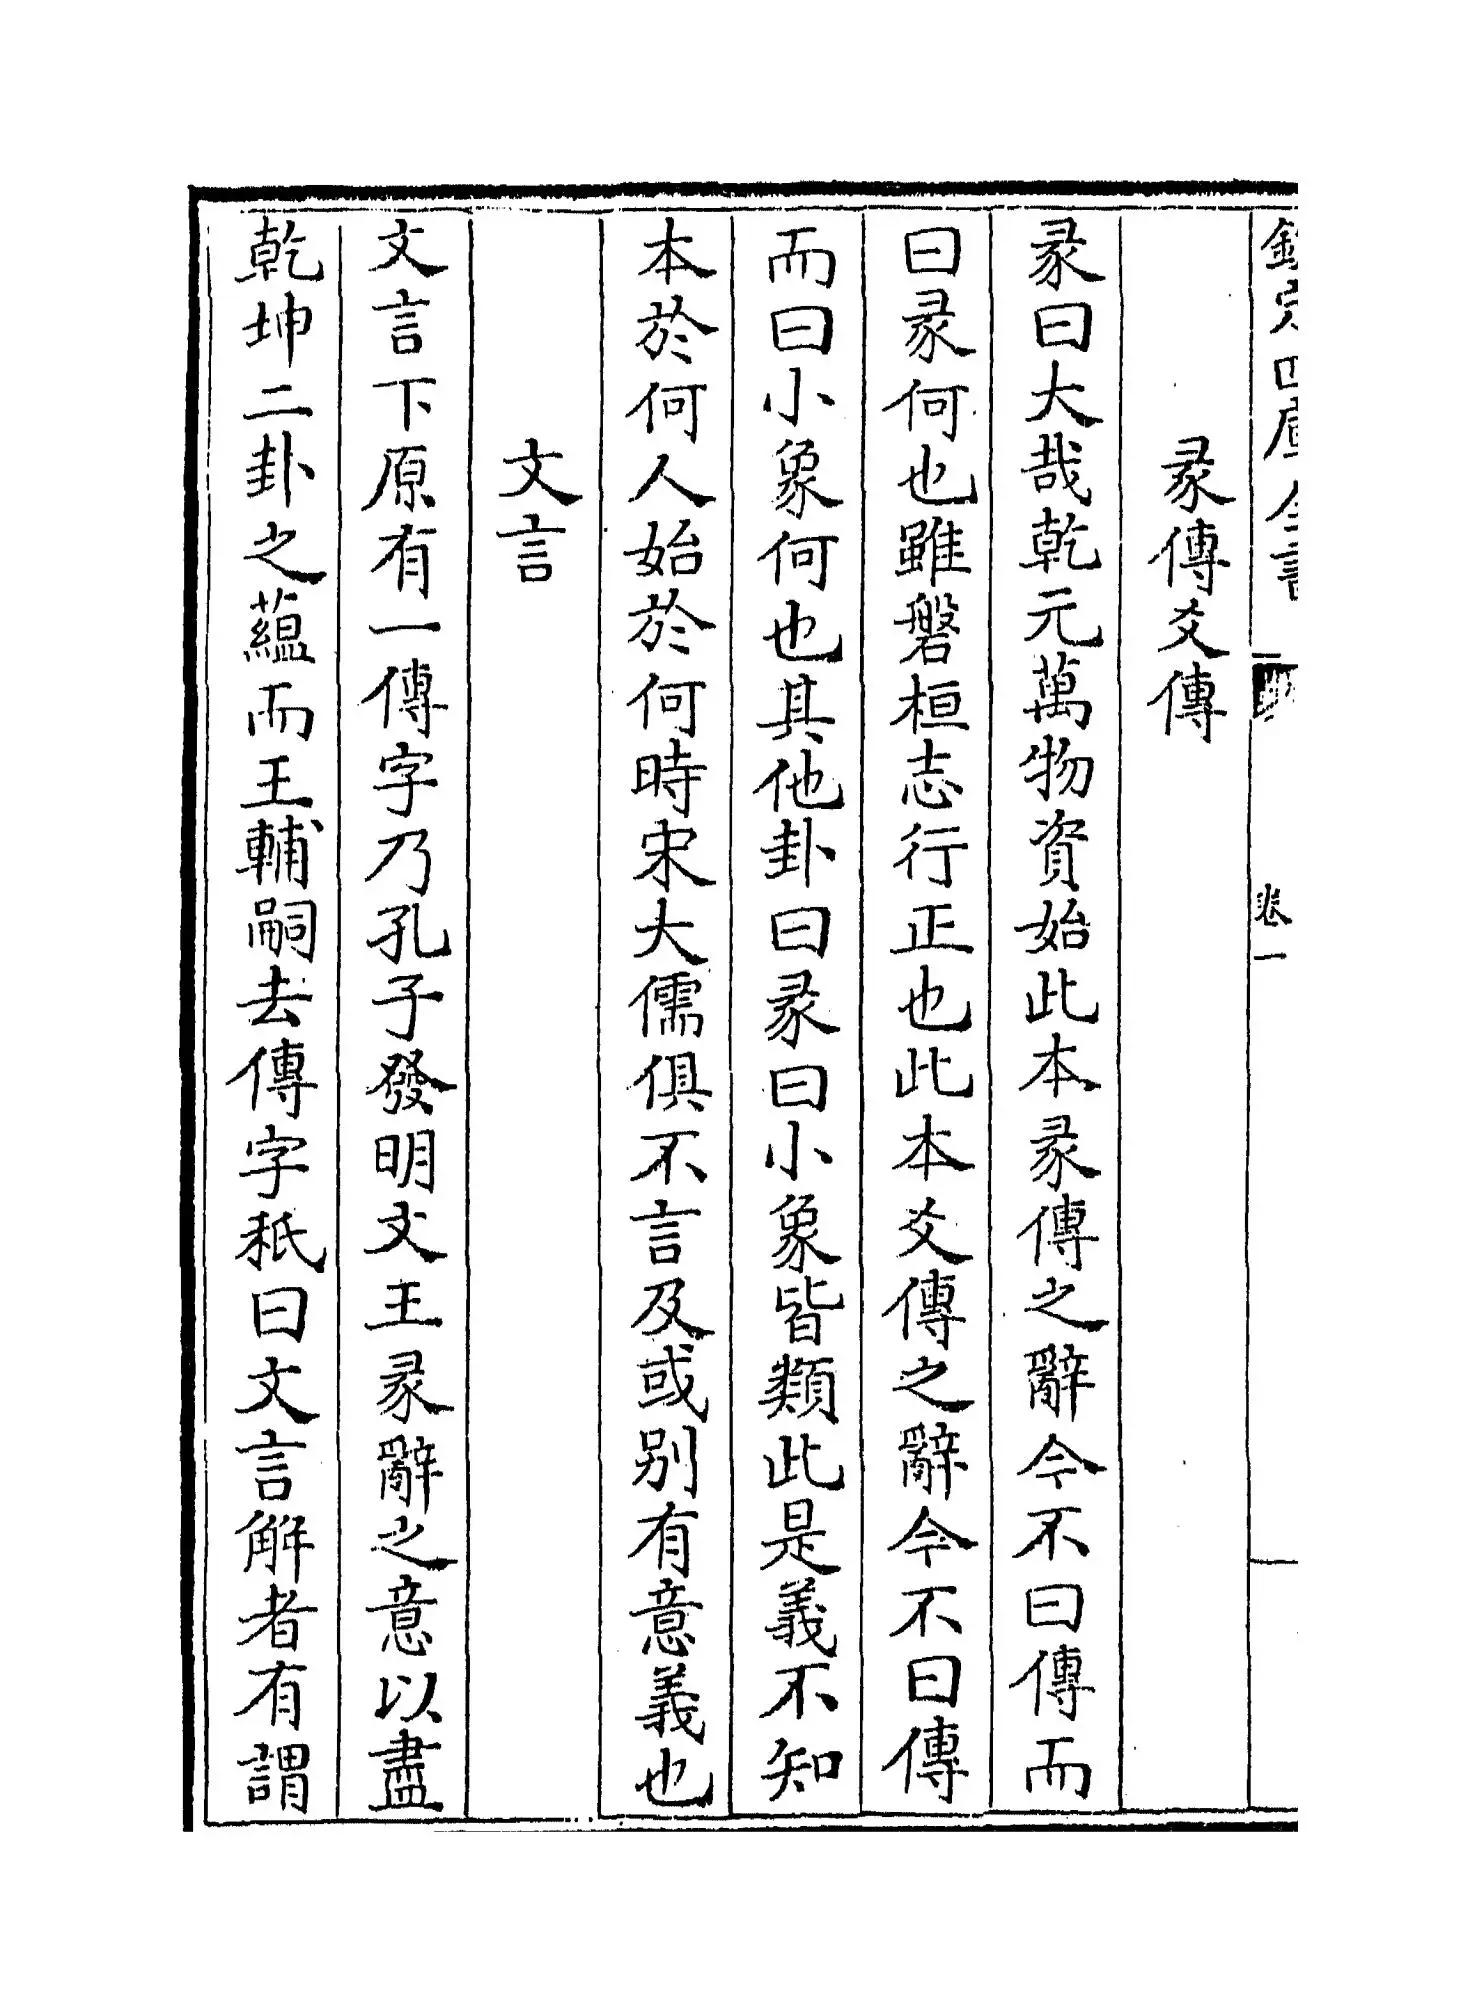 欽定四庫全書
卷一
彖傳爻傳
彖曰大哉乾元萬物資始此本彖傳之辭今不曰傳而
曰彖何也雖磐桓志行正也此本爻傳之辭今不曰傳
而曰小象何也其他卦曰彖曰小象皆類此是義不知
本於何人始於何時宋大儒俱不言及或别有意義也
文言
文言下原有一傳字乃孔子發明文王彖辭之意以盡
乾坤二卦之蘊而王輔嗣去傳字秖曰文言解者有謂